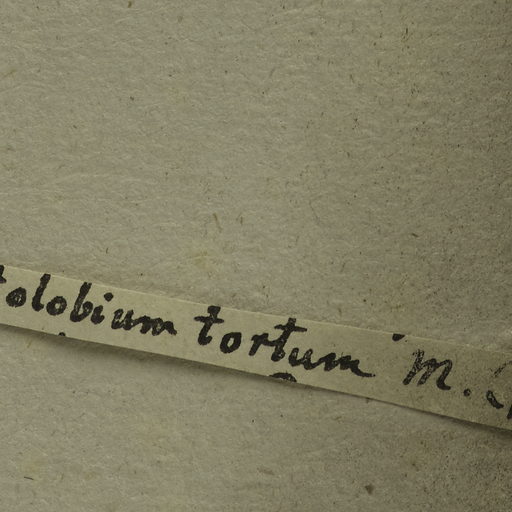 tolobium tortum M.